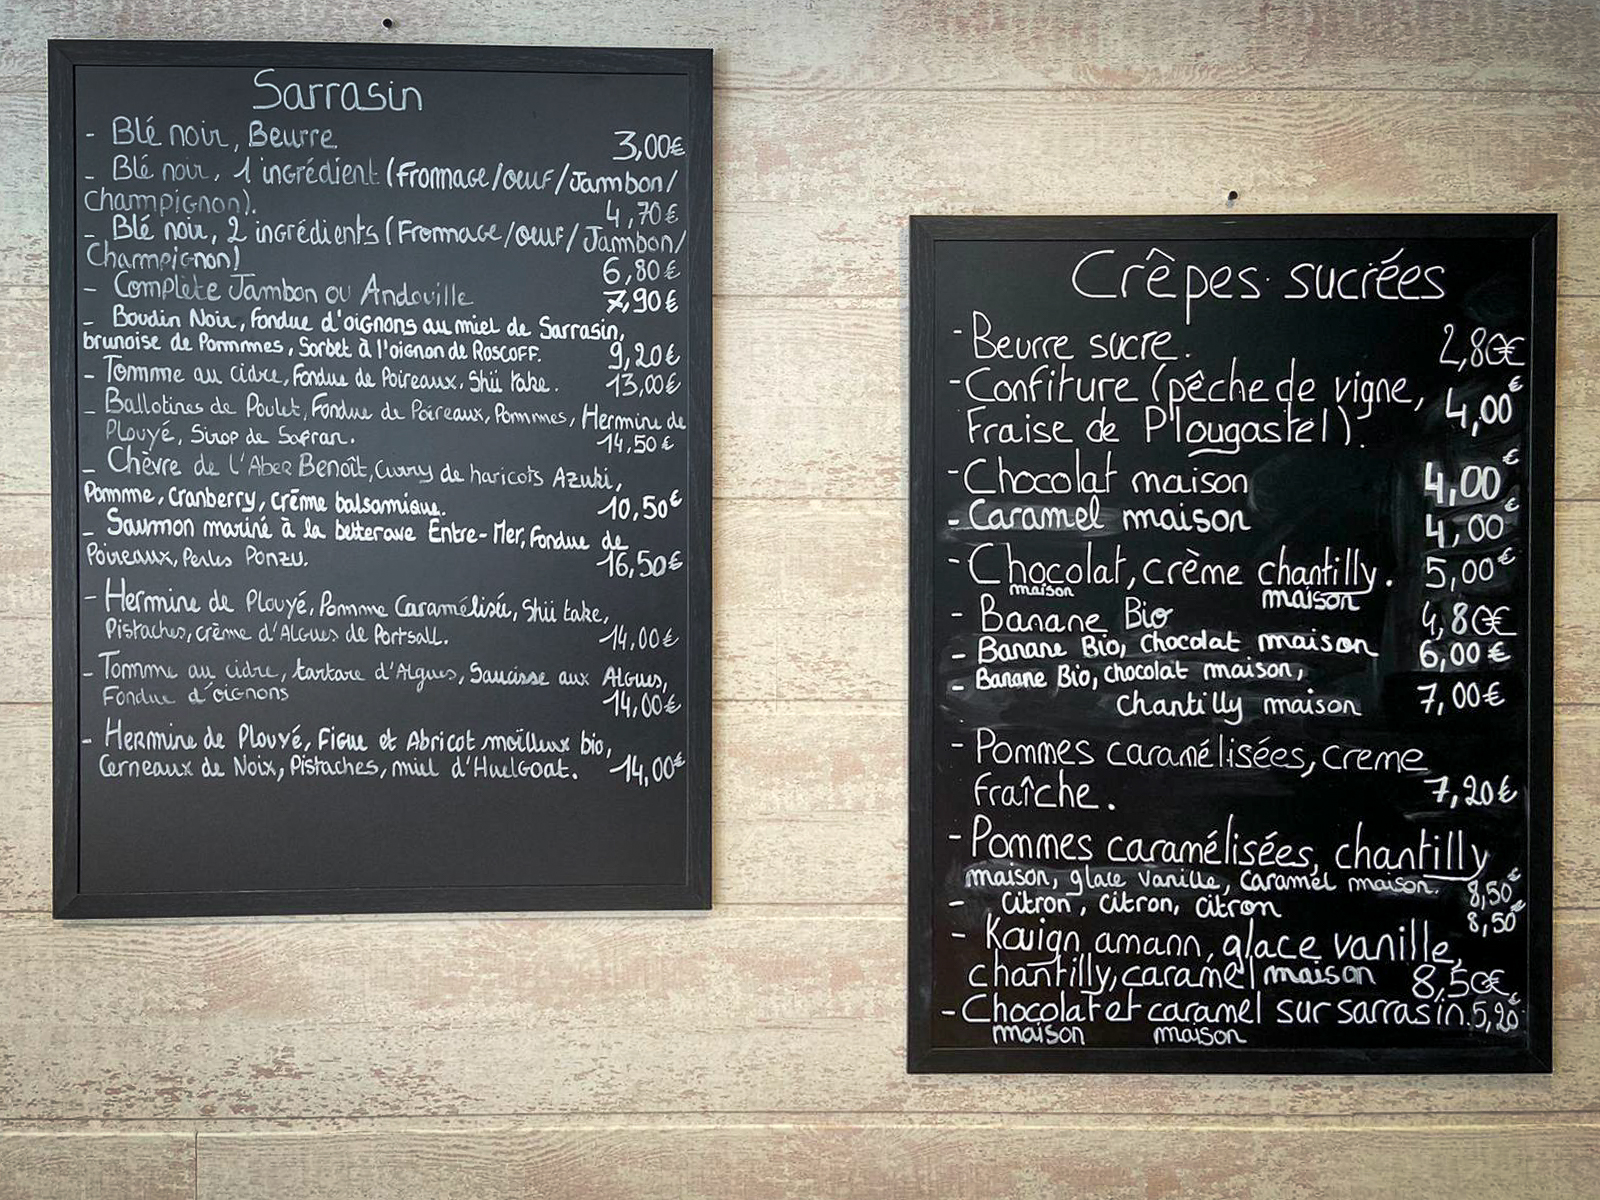 Sarrasin
- Blé noir, Beurre 3,00€
- Blé noir, 1 ingrédient (Fromage/oeuf/Jambon/
Champignon). 4,70€
- Blé noir, 2 ingrédients (Fromage/oeuf/Jambon/
Champignon) 6,80€
- Complète Jambon ou Andouille 7,90€
- Boudin Noir, Fondue d'oignons au miel de Sarrasin,
brunoise de Pommmes, Sorbet à l'oignon de Roscoff. 9,20€
- Tomme au cidre, Fondue de Poireaux, Shii take. 13,00€
- Ballotines de Poulet, Fondue de Poireaux, Pommes, Hermine de
Plouyé, Sirop de Safran. 14,50€
- Chèvre de l'Aber Benoît, Curry de haricots Azuki,
Pomme, Cranberry, Crème balsamique. 10,50€
- Saumon mariné à la betterave Entre-Mer, Fondue de
Poireaux, Perles Ponzu. 16,50€
- Hermine de Plouyé, Pomme Caramélisée, Shii take,
Pistaches, crème d'Algues de Portsall. 14,00€
- Tomme au cidre, tartare d'Algues, Saucisse aux Algues,
Fondue d'oignons 14,00€
- Hermine de Plouyé, Figue et Abricot moëlleux bio,
Cerneaux de Noix, Pistaches, miel d'Huelgoat. 14,00€
Crêpes sucrées
- Beurre sucre. 2,80€
- Confiture (pêche de vigne, 4,00€
Fraise de Plougastel).
- Chocolat maison 4,00€
- Caramel maison 4,00€
- Chocolat, crème chantilly. 5,00€
maison maison
- Banane Bio 4,80€
- Banane Bio, chocolat maison 6,00€
- Banane Bio, chocolat maison,
chantilly maison 7,00€
- Pommes caramélisées, creme
fraîche. 7,20€
- Pommes caramélisées, chantilly
maison, glace vanille, caramel maison. 8,50€
- citron, citron, citron 8,50€
- Kouign amann, glace vanille,
chantilly, caramel maison 8,50€
- Chocolat et caramel sur sarrasin. 5,20€
maison maison